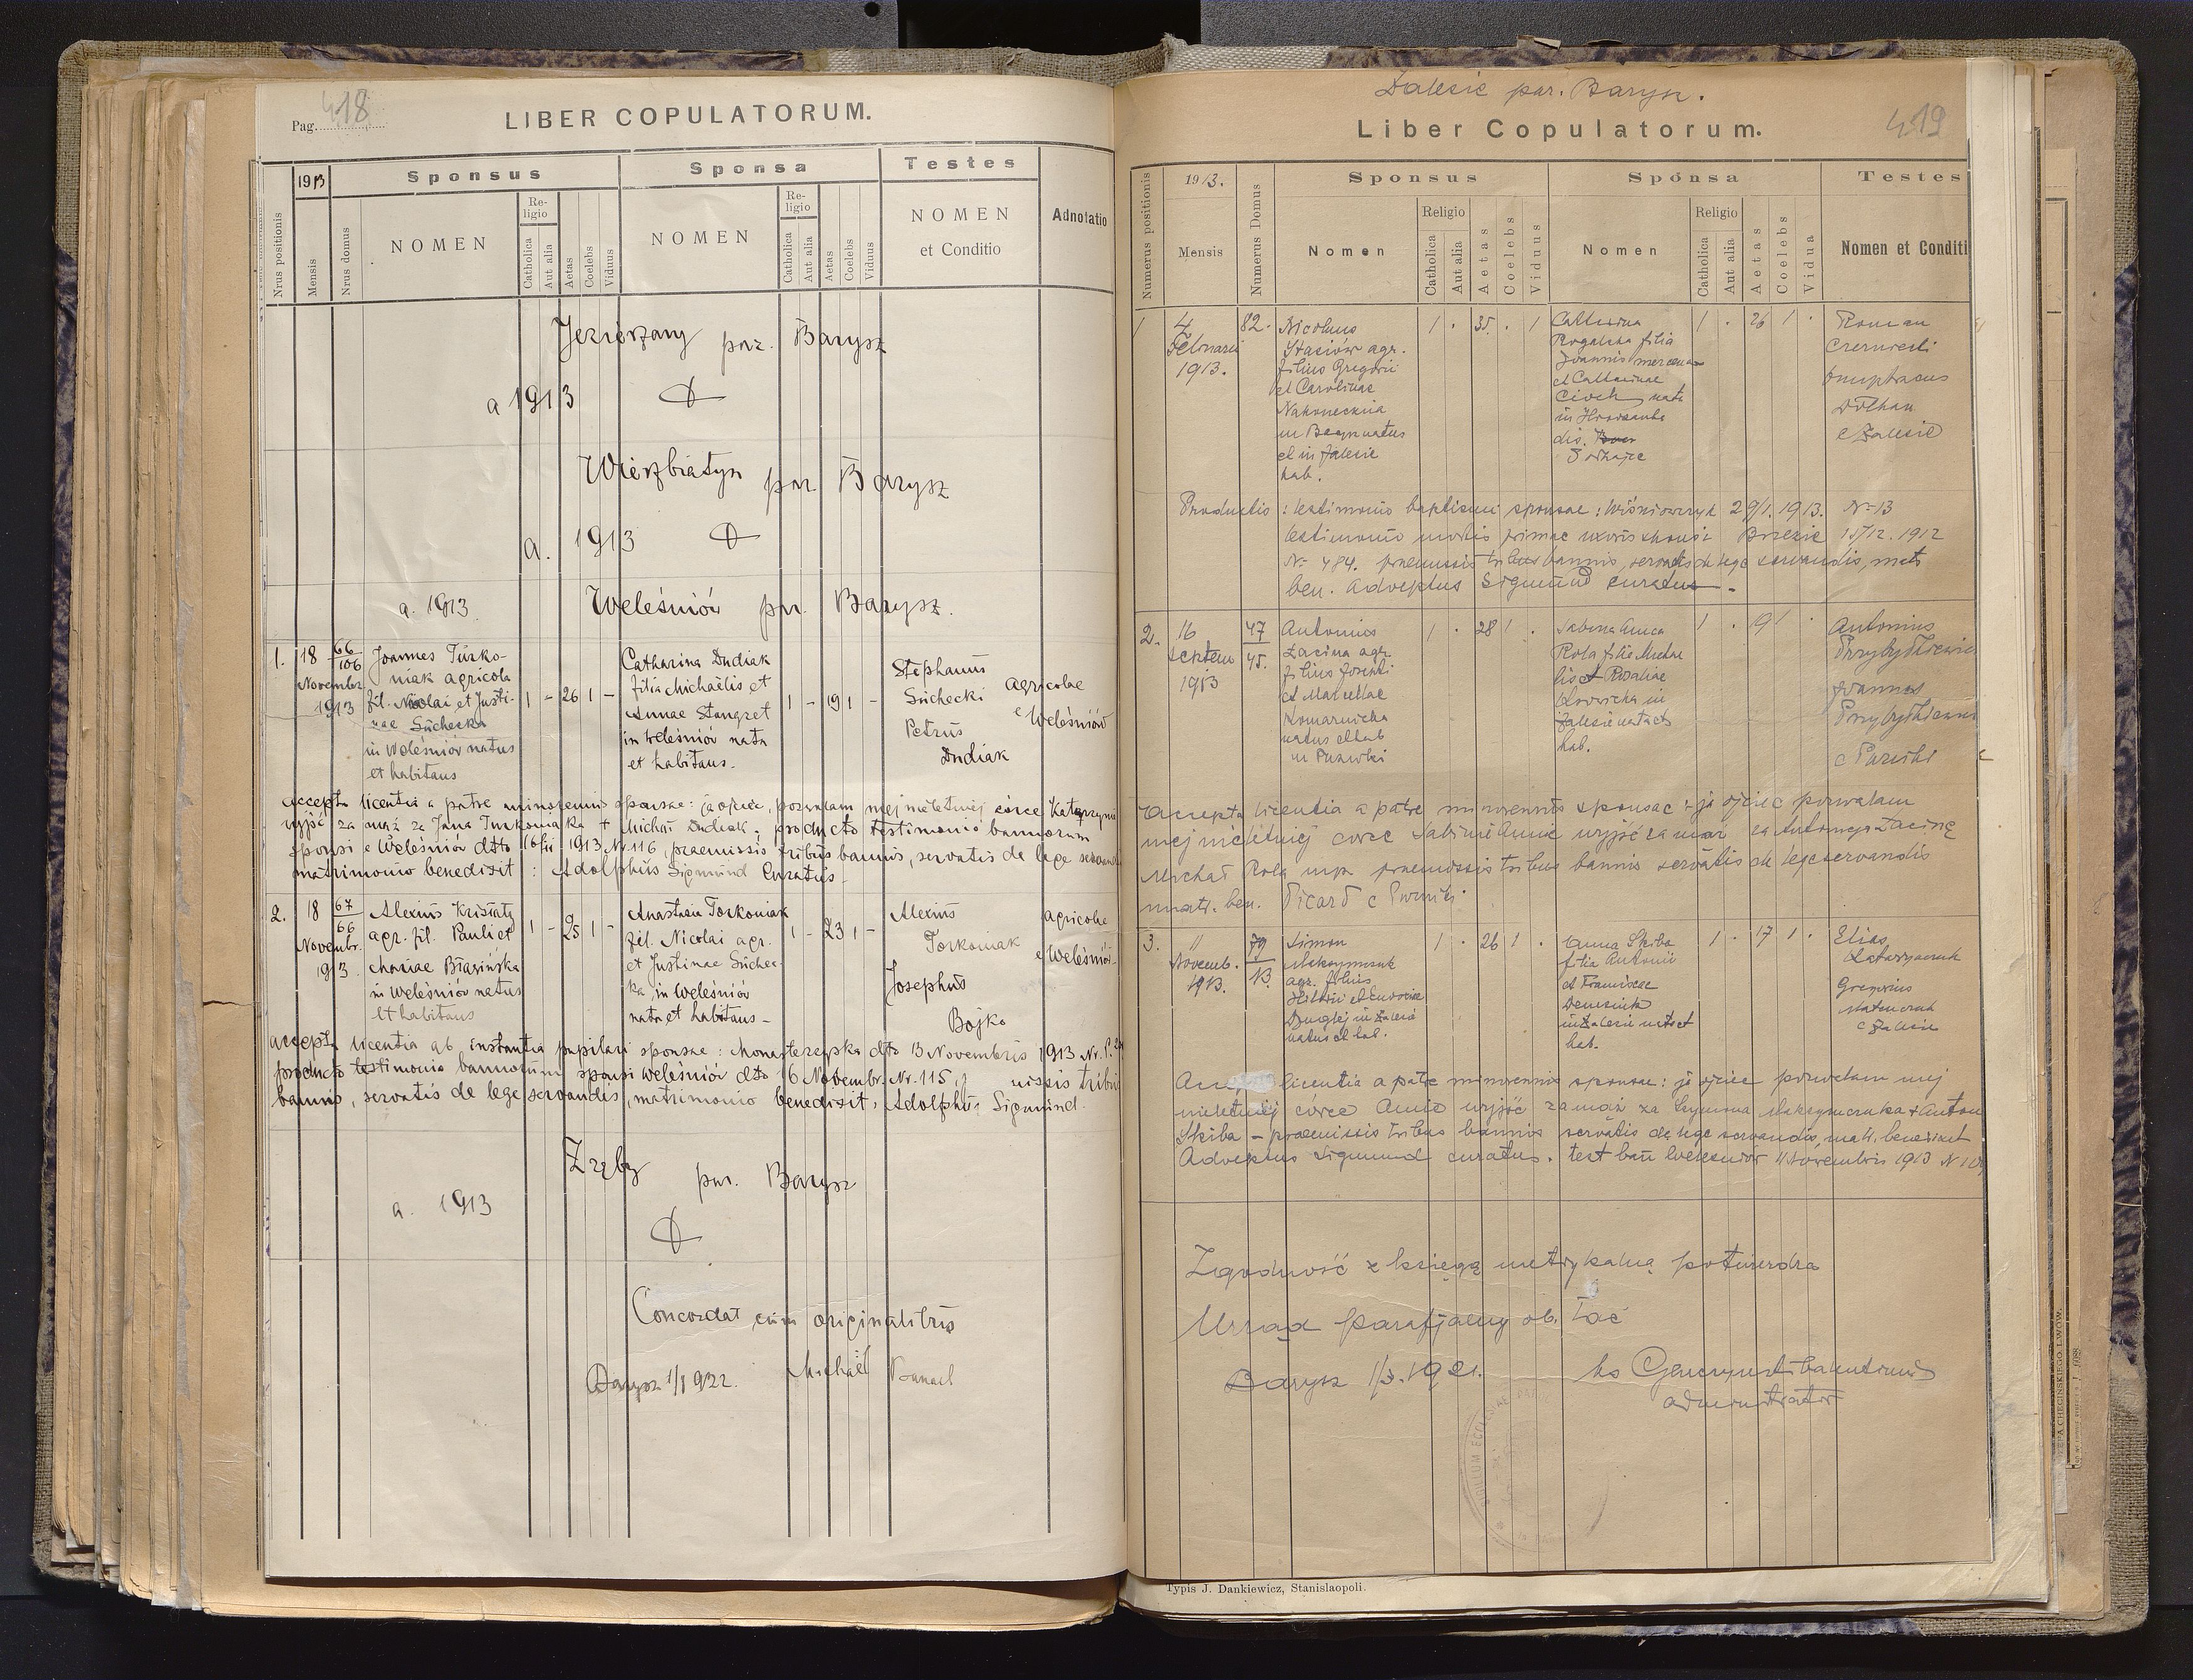 418
Pag.
LIBER COPULATORUM.
1913
Sponsus
Sponsa
Testes
Nrus positionis
Mensis
Nrus domus
NOMEN
Re-
ligio
Catholica
Aut alia
Aetas
Coelebs
Viduus
NOMEN
Re-
ligio
Catholica
Aut alia
Aetas
Coelebs
Viduus
NOMEN
et Conditio
Adnotatio
Jezierzany par. Barysz
a 1913
Wierzbiatyn par. Barysz
a. 1913
a. 1913. Weleśniów par. Barysz.
1. 18 Novembr. 1913
66
106
Joannes Turko-
niak agricola
fil. Nicolai et Justi-
nae Suchecka
in Weleśniów natus
et habitans
1 - 26 1 -
Catharina Dudiak
filia Michaelis et
Annae Stangret
in Weleśniów nata
et habitans.
1 - 19 1 -
Stephanus
Suchecki
Petrus
Dudiak
agricolae
e Weleśniów
accepta licentia a patre minorennis sponsae: ja ojciec, pozwalam mej nieletniej córce Katarzynie
wyjść za mąż za Jana Turkoniaka + Michał Dudiak; producto testimonio bannorum
sponsi e Weleśniów dto 16/11 1913 Nr. 116, praemissis tribus bannis, servatis de lege servandis
matrimonio benedixit: Adolphus Sigmund Curatus.
2. 18 Novembr. 1913
67
66
Alexius Kristaty
agr. fil. Pauli et
Mariae Błazińska
in Weleśniów natus
et habitans
1 - 25 1 -
Anastasia Torkoniak
fil. Nicolai agr.
et Justinae Suchec-
ka, in Weleśniów
nata et habitans -
1 - 23 1 -
Alexius
Torkoniak
Josephus
Bojko
agricolae
e Weleśniów
accepta licentia ab instantia pupilari sponsae: Monasterzyska dto 13 Novembris 1913 Nr. P.
producto testimonio bannorum sponsi Weleśniów dto 16 Novembr. Nr. 115, missis tribus
bannis, servatis de lege servandis, matrimonio benedixit, Adolphus Sigmund.
Zręby par. Barysz
a. 1913
Concordat cum originalibus
Barysz 1/1 1922. Michaël Banach
Zalesie par. Barysz.
419
Liber Copulatorum.
1913.
Sponsus
Sponsa
Testes
Numerus positionis
Mensis
Numerus Domus
Nomen
Religio
Catholica
Aut alia
Aetas
Coelebs
Viduus
Nomen
Religio
Catholica
Aut alia
Aetas
Coelebs
Vidua
Nomen et Conditi
1 4
Februarii
1913.
82.
Nicolaus
Stasiów agr.
filius Gregorii
et Carolinae
Nakonecznia
in Barysz natus
et in Zalesie
hab.
1 . 35. . 1
Catharina
Rogalska filia
Joannis
et Catharinae
Cioch nata
in
dis.
1 . 26 1 .
Roman
Czerniecki
Dołhan
e Zalesie
Productis: testimonio baptismi sponsae: Wiśniowczyk 29/1. 1913. N-13
testimonio mortis primae uxoris sponsi Brzezie 15/12. 1912
N- 484. praemissis tribus bannis, servatis de lege servandis, matr
ben. Adolphus Sigmund curatus.
2. 16
Septem
1913
47
45.
Antonius
Zacina agr.
filius Josephi
et Marcellae
Komarnicka
natus et hab
in Puzniki
1 . 28 1 .
Sabina Anna
Rola filia Micha
lis et Rosaliae
in
Zalesie nata et
hab.
1 . 19 1 .
Antonius
Przybytkiewicz
Joannes
Przybytkiewicz
e Puzniki
Accepta licentia a patre minorennis sponsae: ja ojciec pozwalam
mej nieletniej córce Sabinie Annie wyjść za mąż za Antoniego Zacinę
Michał Rola mp. praemissis tribus bannis servatis de lege servandis
matr. ben. Picard e Puzniki.
3. 11
Novemb.
1913.
79
13.
Simon
Maksymczuk
agr. filius
Hilarii et Eudociae
in Zalesie
natus et hab.
1 . 26 1 .
Anna Skiba
filia Antonii
et Franciscae
in Zalesie nata et
hab.
1 . 17 1 .
Elias
Gregorius
e Zalesie
licentia a patre minorennis sponsae: ja ojciec pozwalam mej
nieletniej córce Annie wyjść za mąż za Szymona Maksymczuka + Anton
Skiba - praemissis tribus bannis servatis de lege servandis, matr. benedixit
Adolphus Sigmund curatus. test ban Weleśniów 11 Novembris 1913 N
Zgodność z księgą metrykalną potwierdza
Urząd parafjalny ob. łać
Barysz 1/3. 1921.
administrator
Typis J. Dankiewicz, Stanislaopoli.